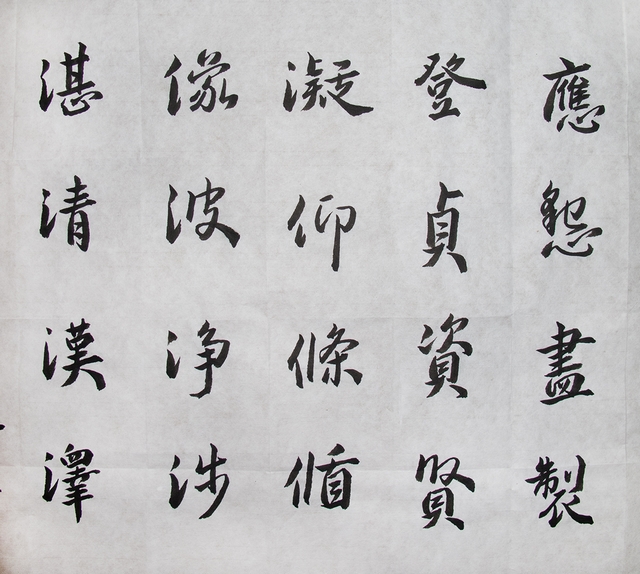 應懇盡製
登貞資賢
凝仰條循
像波净涉
湛清漢澤